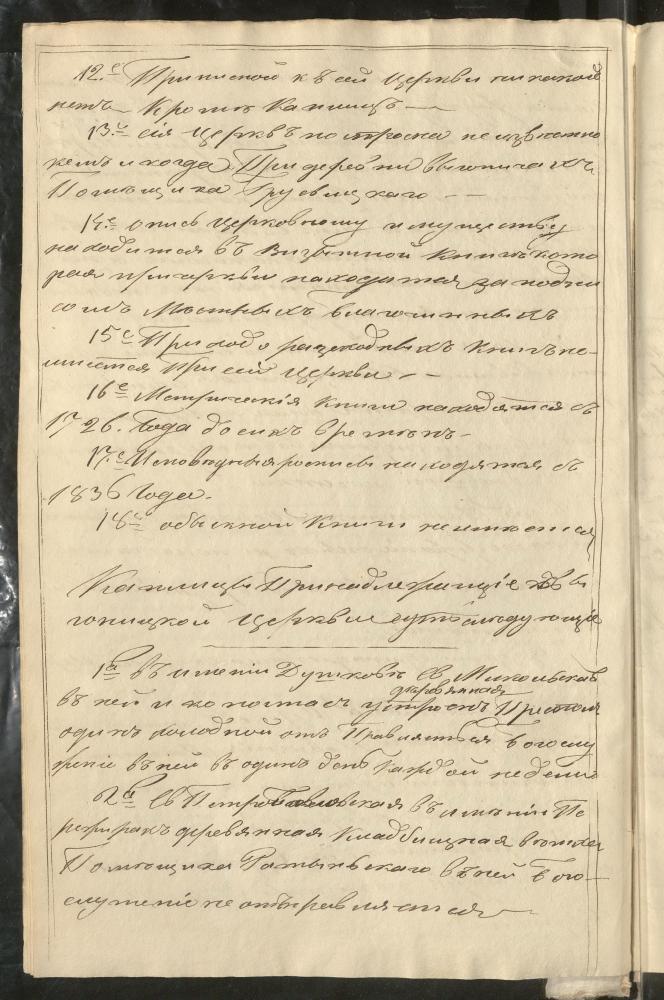 12.е Приписной къ сей Церкви никакой
нетъ Кроме Каплицъ —
13.е сія Церквъ построена неизвестно
кемъ и когда При деревни
Помещика —
14.е опись Церковному имуществу
находится въ Визытной Книге кото
рая при церкви находится за подпи
сомъ Местныхъ благочинныхъ
15.е Приходо расходныхъ Книгъ не
имеется При сей Церкви —
16.е Метрическія Книги находятся съ
1726. Года до сихъ времянъ —
17.е Исповедныя росписи находятся съ
1836 Года.
18.е обыскной Книги неимеется
Каплицы Принадлежащіе къ Вы
гоницкой Церкви суть следующіе
1я въ именіи Дутковъ св. Микольская
деревянная
въ ней иконостасъ устроенъ Престолъ
одинъ холодной отъ Правляеться Богослу
женіе въ ней въ одинъ день Каждой недели
2я Св Петро Павловская въ именіи Пе
деревянная Кладбищная
Помещика въ ней Бого
служеніе не отъправляется